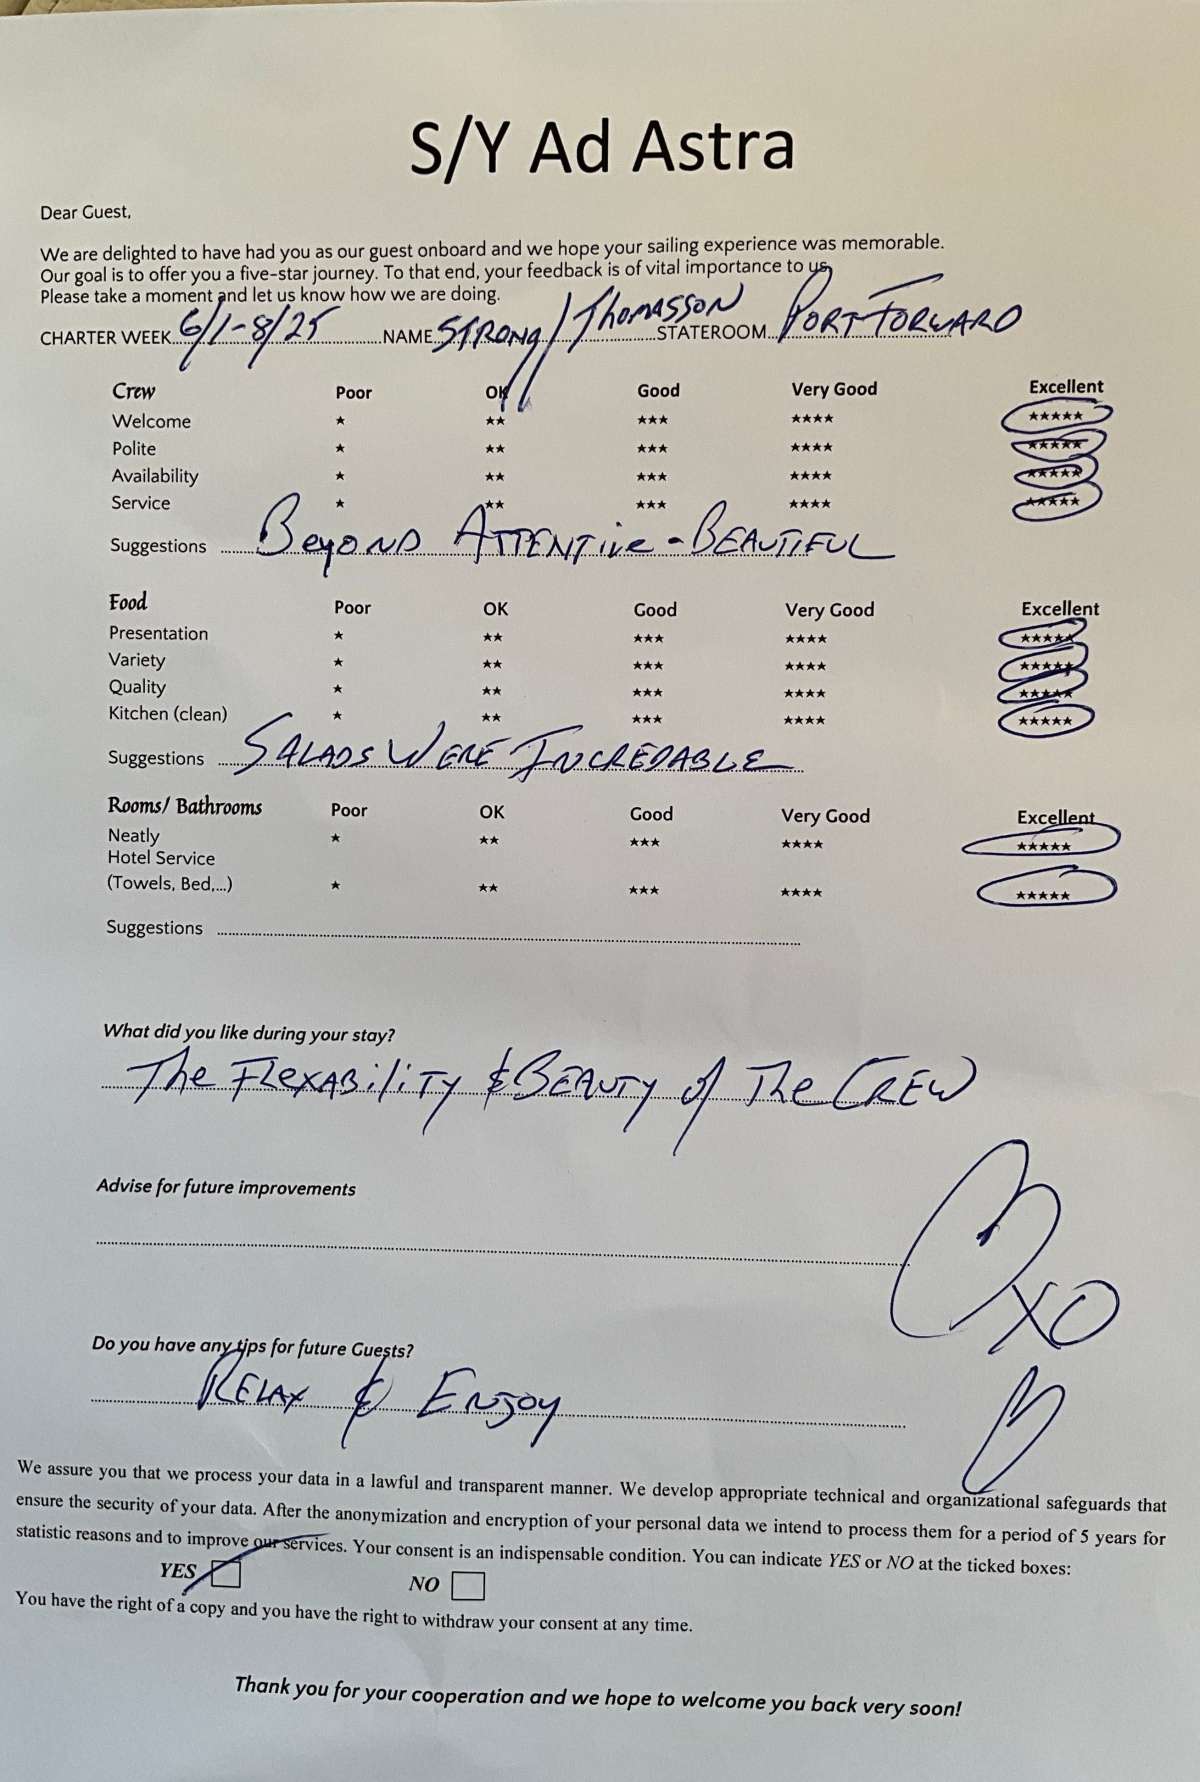 S/Y Ad Astra
Dear Guest,
We are delighted to have had you as our guest onboard and we hope your sailing experience was memorable.
Our goal is to offer you a five-star journey. To that end, your feedback is of vital importance to us.
Please take a moment and let us know how we are doing.
CHARTER WEEK 6/1-8/25 NAME STRONG/THOMASSON STATEROOM PORT FORWARD
Crew Poor OK Good Very Good Excellent
Welcome ★ ★★ ★★★ ★★★★ ★★★★★
Polite ★ ★★ ★★★ ★★★★ ★★★★★
Availability ★ ★★ ★★★ ★★★★ ★★★★★
Service ★ ★★ ★★★ ★★★★ ★★★★★
Suggestions BeyOND ATTENTive - BEAUTIFUL
Food Poor OK Good Very Good Excellent
Presentation ★ ★★ ★★★ ★★★★ ★★★★★
Variety ★ ★★ ★★★ ★★★★ ★★★★★
Quality ★ ★★ ★★★ ★★★★ ★★★★★
Kitchen (clean) ★ ★★ ★★★ ★★★★ ★★★★★
Suggestions SALADS WERE INCREDABLE
Rooms/ Bathrooms Poor OK Good Very Good Excellent
Neatly ★ ★★ ★★★ ★★★★ ★★★★★
Hotel Service
(Towels, Bed,...) ★ ★★ ★★★ ★★★★ ★★★★★
Suggestions
What did you like during your stay?
The FLexABiliTy & BEAUTY of The CREW
Advise for future improvements
XO
Do you have any tips for future Guests?
RELAX & ENJOY
We assure you that we process your data in a lawful and transparent manner. We develop appropriate technical and organizational safeguards that
ensure the security of your data. After the anonymization and encryption of your personal data we intend to process them for a period of 5 years for
statistic reasons and to improve our services. Your consent is an indispensable condition. You can indicate YES or NO at the ticked boxes:
YES NO
You have the right of a copy and you have the right to withdraw your consent at any time.
Thank you for your cooperation and we hope to welcome you back very soon!